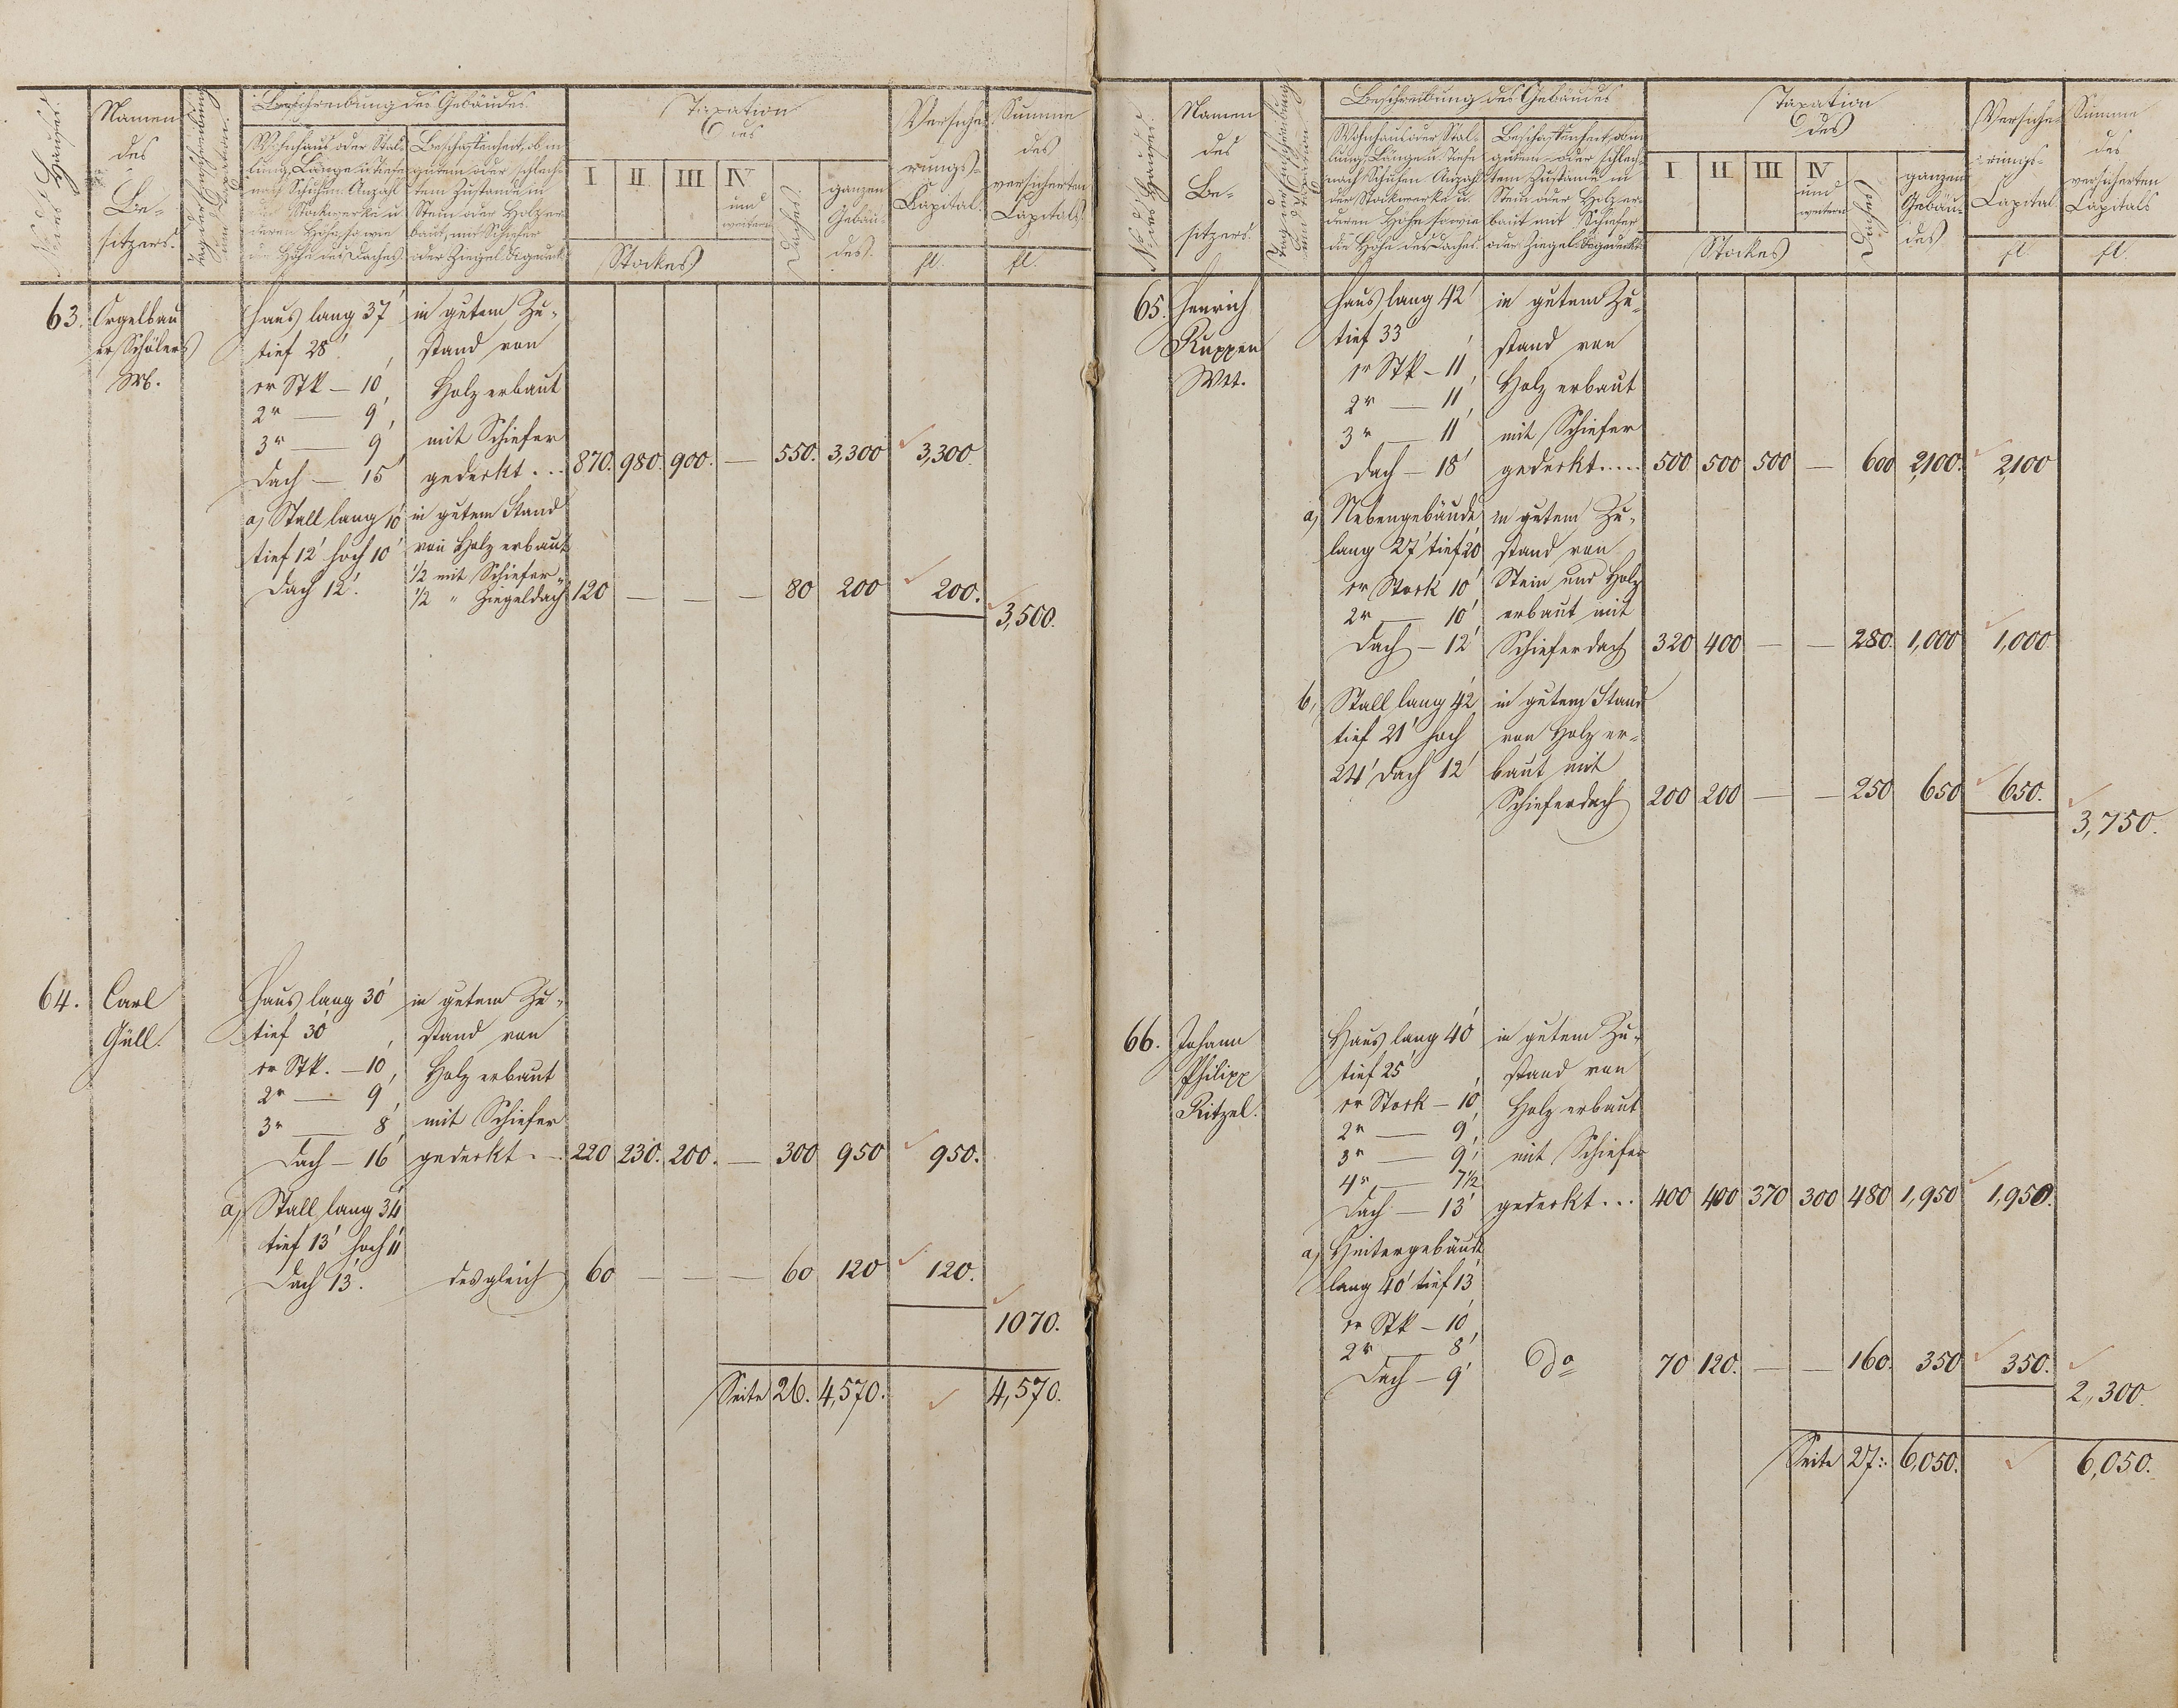 No. des Hauses.
Namen
des
Be-
sitzers.
Tag der Einschreibung
und Taxation.
Beschreibung des Gebäudes
Wohnhaus oder Stal-
lung, Länge u. Tiefe
nach Schuhen. Anzahl
der Stockwerke u.
deren Höhe, sowie
die Höhe des Daches.
Beschaffenheit, ob in
gutem oder schlech-
tem Zustande, in
Stein oder Holz er-
baut, mit Schiefer
oder Ziegel &c gedeckt.
Taxation
des
I II III IV
und
weitern
Stockes
Daches.
ganzen
Gebäu-
des.
Versiche-
rungs-
Kapital.
fl.
Summe
des
versicherten
Capitals.
fl.
63. Orgelbau
er Schölers
Wb.
Haus lang 37'
tief 28'
er Stk — 10'
2r — 9'
3r — 9'
Dach — 15'
in gutem Zu-
stand von
Holz erbaut
mit Schiefer
gedeckt... 870. 980. 900. — 550. 3,300 3,300.
a, Stall lang 10'
tief 12' hoch 10'
Dach 12'.
in gutem Stand
von Holz erbaut
1/2 mit Schiefer-
1/2 " Ziegeldach 120 — — — 80 200 200.
3,500.
64. Carl
Güll.
Haus lang 30'
tief 30'
er Stk. — 10'
2r — 9'
3r — 8'
Dach — 16'
in gutem Zu-
stand von
Holz erbaut
mit Schiefer
gedeckt. — 220 230. 200. — 300 950 950.
a, Stall lang 34'
tief 13' hoch 11'
Dach 13'. desgleich 60 — — — 60 120 120.
1070.
Seite 26. 4,570. 4,570.
No. des Hauses.
Namen
des
Be-
sitzers.
Tag der Einschreibung
und Taxation
Beschreibung des Gebäudes
Wohnhaus oder Stal-
lung, Länge u. Tiefe
nach Schuhen. Anzahl
der Stockwerke u.
deren Höhe sowie
die Höhe des Daches
Beschaffenheit, ob in
gutem oder schlech-
tem Zustande in
Stein oder Holz er-
baut mit Schiefer
oder Ziegel &c gedeckt.
Taxation
des
I II III IV
und
weitern
Stockes
Daches
ganzen
Gebäu-
des
Versiche-
rungs-
Capital
fl.
Summe
des
versicherten
Capitals
fl.
65. Henrich
Kuppen
Wtt.
Haus lang 42'
tief 33'
er Stk — 11'
2r — 11'
3r — 11'
Dach — 18'
in gutem Zu-
stand von
Holz erbaut
mit Schiefer
gedeckt.... 500 500 500 — 600 2,100. 2,100
a, Nebengebäude
lang 27' tief 20'
er Stock 10'
2r — 10'
Dach — 12'
in gutem Zu-
stand von
Stein und Holz
erbaut mit
Schieferdach 320 400 — — 280. 1,000 1,000
b, Stall lang 42'
tief 21' hoch
24' Dach 12'
in gutem Stand
von Holz er-
baut mit
Schieferdach 200 200 — — 250 650 650.
3,750.
66. Johann
Philipp
Ritzel.
Haus lang 40'
tief 25'
er Stock — 10'
2r — 9'
3r — 9'
4r — 7 1/2
Dach — 13'
in gutem Zu-
stand von
Holz erbaut
mit Schiefer
gedeckt... 400 400 370 300 480 1,950 1,950.
a, Hintergebäude
lang 40' tief 13'
er Stk — 10'
2r — 8'
Dach — 9' do 70 120. — — 160. 350 350.
2,300.
Seite 27. 6,050. 6,050.